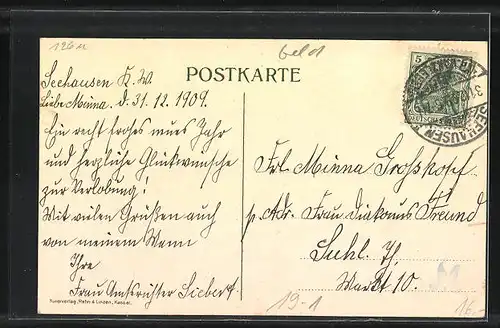 126 M
Geld
POSTKARTE
5
SEEHAUSEN
Seehausen K. W.
d. 31.12.1909.
Liebe Minna.
Ein recht frohes neues Jahr
und herzliche Glückwünsche
zur Verlobung!
Mit vielen Grüßen auch
von meinem Mann
Ihre
Frau Amtsrichter Siebert
Frl. Minna Großkopf
p. Adr. Frau Diakonus Freund
Suhl. Th.
Markt 10.
Kunstverlag, Hahn & Linden, Kassel.
19-1
16.-